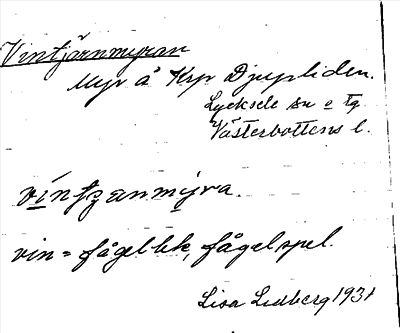 Vintjärnmyran
Myr å Krp Djupliden.
Lycksele sn o tg
Västerbottens l.
vintzanmyra.
vin = fågellek, fågelspel.
Lisa Lidberg 1931